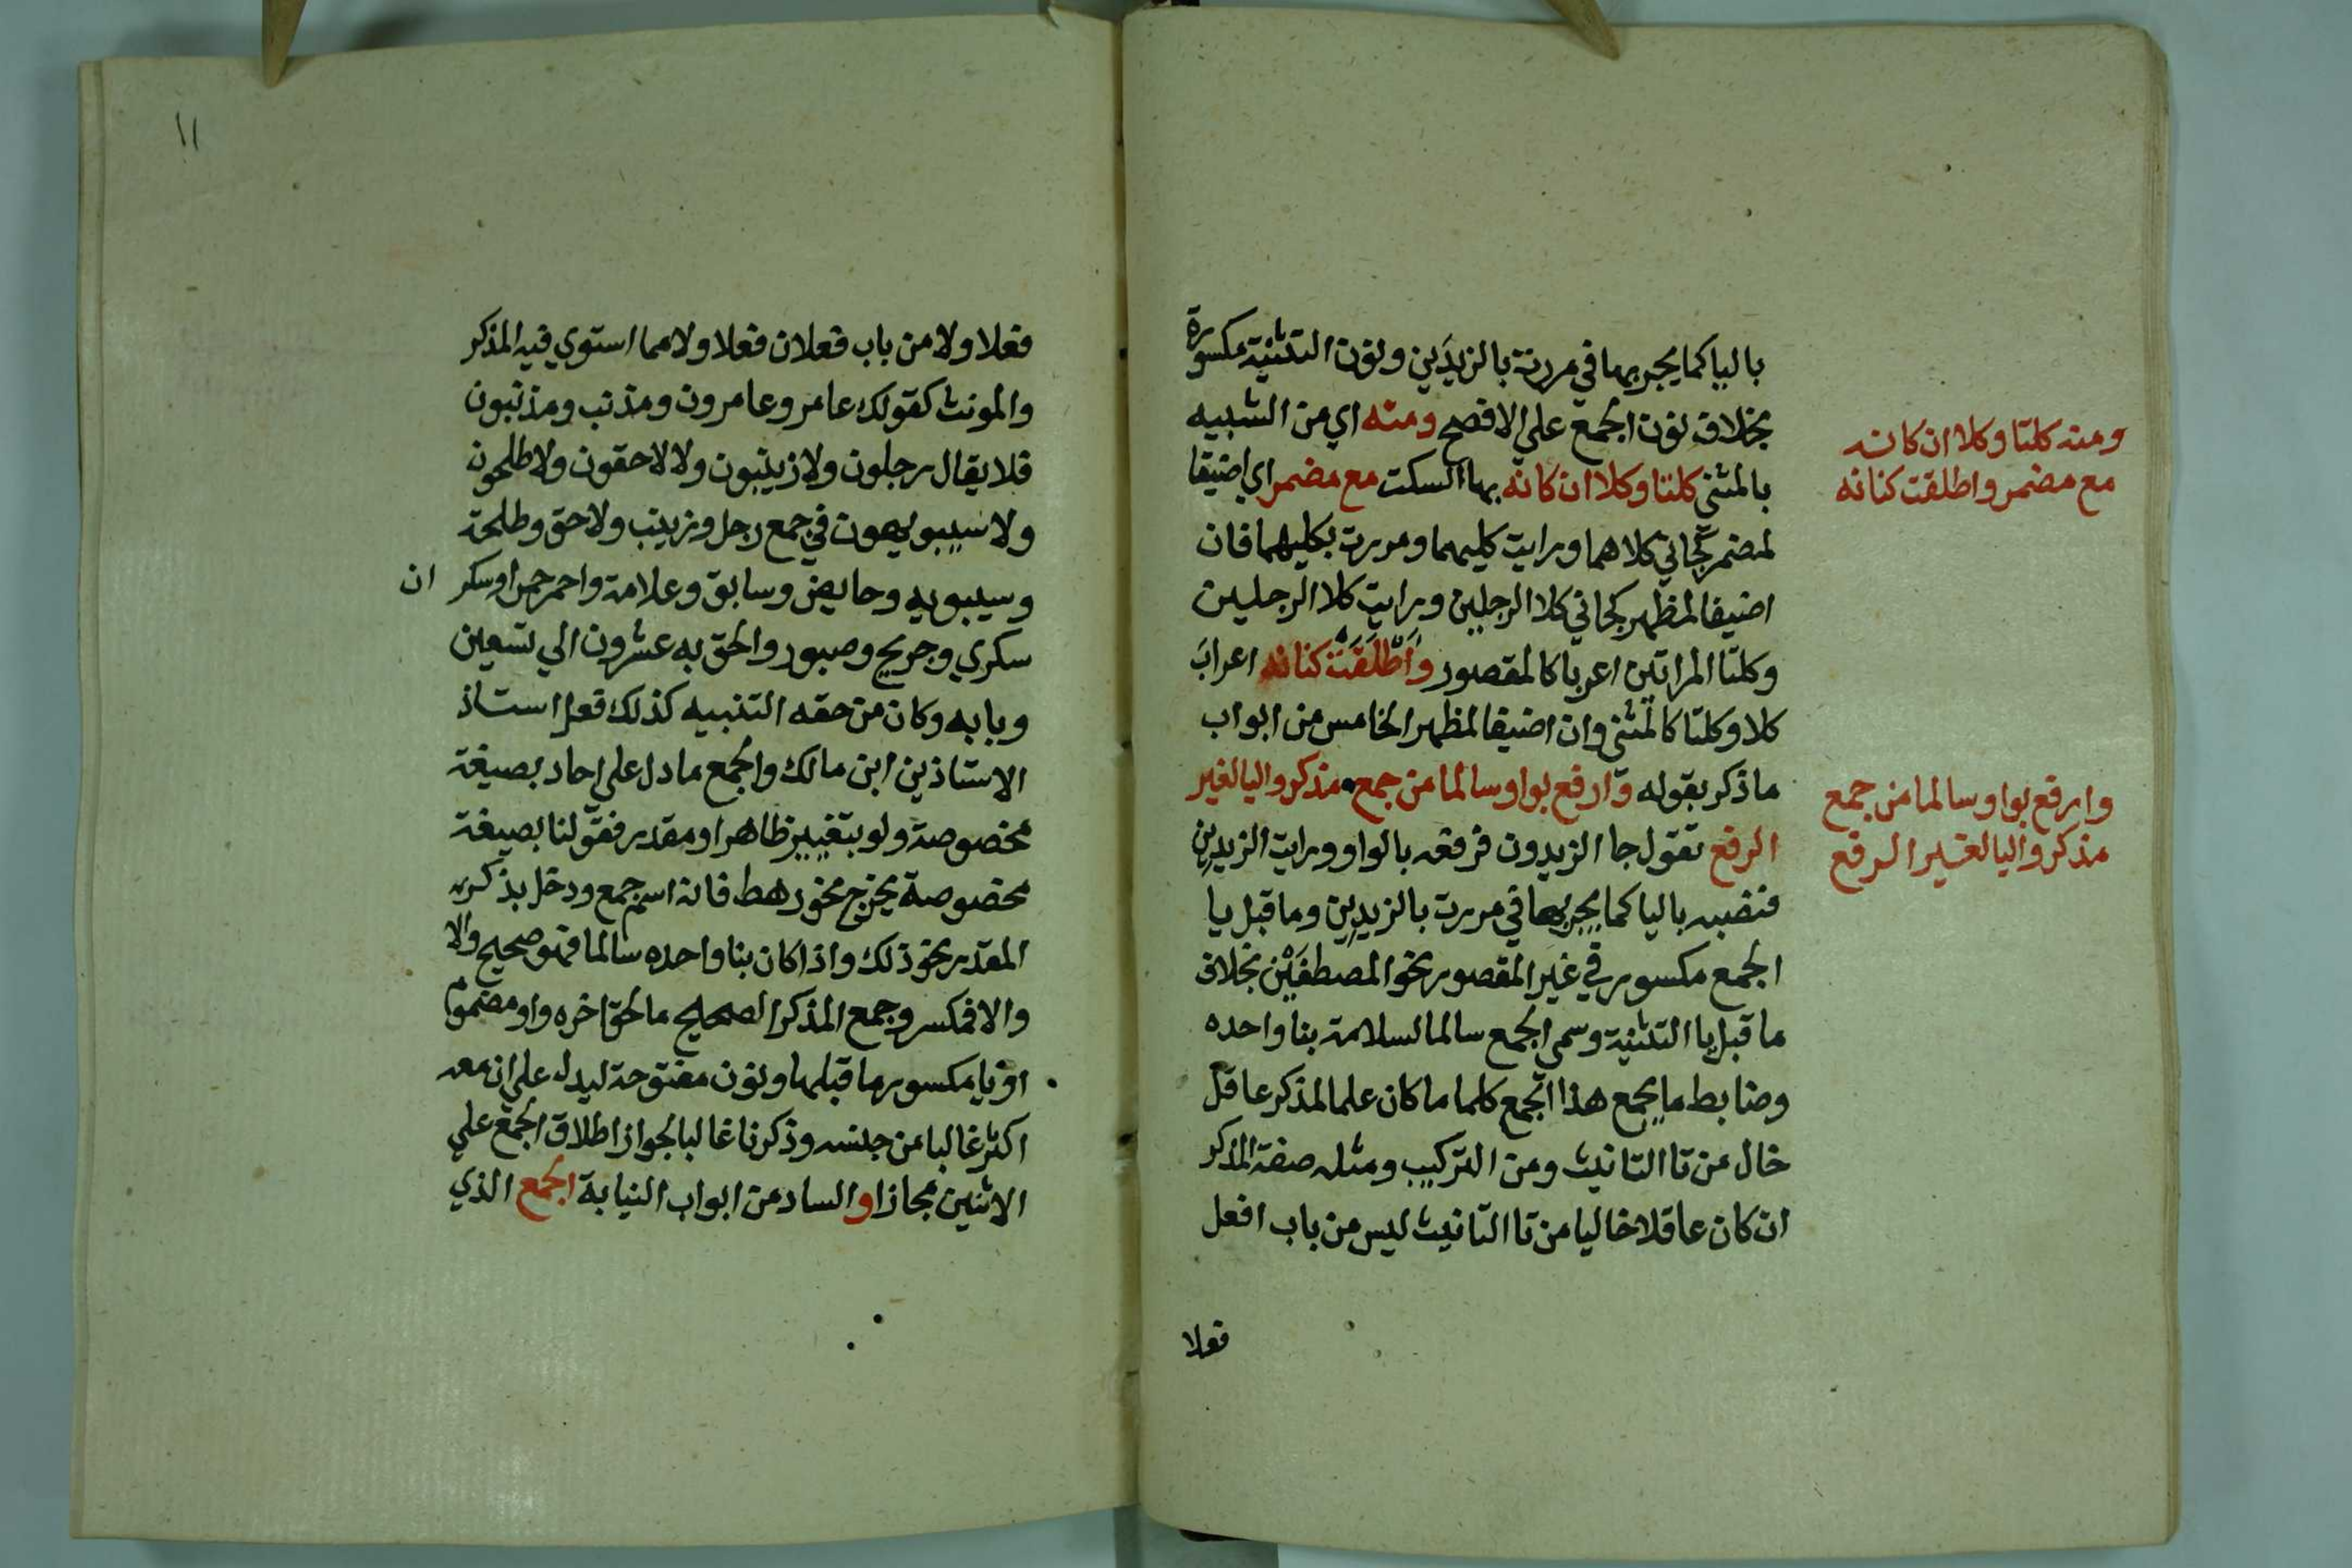 باليا كما يجر بها في مررت بالزيدَين ونون التثنية مكسورة
بخلاف نون الجمع علي الافصح ومنه اي من الشبيه
بالمثني كلتا وكلا ان كانه بها السكت مع مضمر اي اضيفا
لمضمر كجاني كلاهما ورايت كليهما ومررت بكليهما فان
اضيفا لمظهر كجاني كلا الرجلين ورايت كلا الرجلين
وكلتا المراتين اعربا كالمقصور واطلقت كنانه اعراب
كلا وكلتا كالمثني وان اضيفا لمظهر الخامس من ابواب
ما ذكر بقوله وارفع بواو سالما من جمع مذكر واليا لغير
الرفع تقول جا الزيدون فرفعه بالواو ورايت الزيدِين
فنصبه باليا كما يجر بها في مررت بالزيدِين وما قبل يا
الجمع مكسور في غير المقصور نحو المصطفَيْن بخلاف
ما قبل يا التثنية وسمي الجمع سالما لسلامة بنا واحده
وضابط ما يجمع هذا الجمع كلما ما كان علما لمذكر عاقل
خال من تا التانيث ومن التركيب ومثله صفة المذكر
ان كان عاقلا خاليا من تا التانيث ليس من باب افعل
فعلا
ومنه كلتا وكلا ان كانه
مع مضمر واطلقت كنانه
وارفع بواو سالما من جمع
مذكر واليا لغير الرفع
١١
فعلا ولا من باب فعلان فعلا ولا مما استوي فيه المذكر
والمونث كقولك عامر وعامرون ومذنب ومذنبون
فلا يقال رجلون ولا زينبون ولا لاحقون ولا طلحون
ولا سيبويهون في جمع رجل وزينب ولا حق وطلحة
وسيبويه وحايض وسابق وعلامة واحمر حمرا وسكر ان
سكري وجريح وصبور والحق به عشرون الي تسعين
وبابه وكان من حقه التنبيه كذلك فعل استاذ
الاستاذين ابن مالك والجمع ما دل علي احاد بصيغة
مخصوصة ولو بتغيير ظاهر او مقدر فقولنا بصيغة
مخصوصة يخرج نحو رهط فانه اسم جمع ودخل بذكره
المقدر نحو ذلك واذا كان بنا واحده سالما فهو صحيح والا
والا فمكسر وجمع المذكر الصحيح ما لحق اخره واو مضموم
او يا مكسور ما قبلها ونون مفتوحة ليدل علي ان معه
اكثر غالبا من جنسه وذكرنا غالبا لجواز اطلاق الجمع علي
الاثنين مجازا والساد من ابواب النيابة الجمع الذي